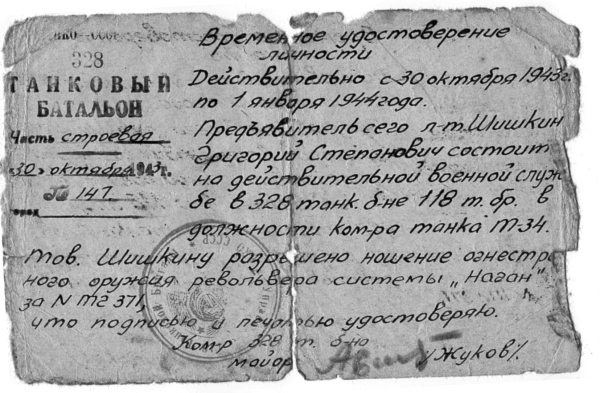 НКО-СССР
328
ТАНКОВЫЙ
БАТАЛЬОН
Часть строевая
"30" октября 1943 г.
№ 147
Временное удостоверение
личности
Действительно с 30 октября 1943г.
по 1 января 1944 года.
Предъявитель сего л-т Шишкин
Григорий Степанович состоит
на действительной военной служ
бе в 328 танк. б-не 118 т. бр. в
должности ком-ра танка Т-34.
Тов. Шишкину разрешено ношение огнестр
ного оружия револьвера системы „Наган"
за N
что подписью и печатью удостоверяю.
Ком-р 328 т. б-на
майор /Жуков/.